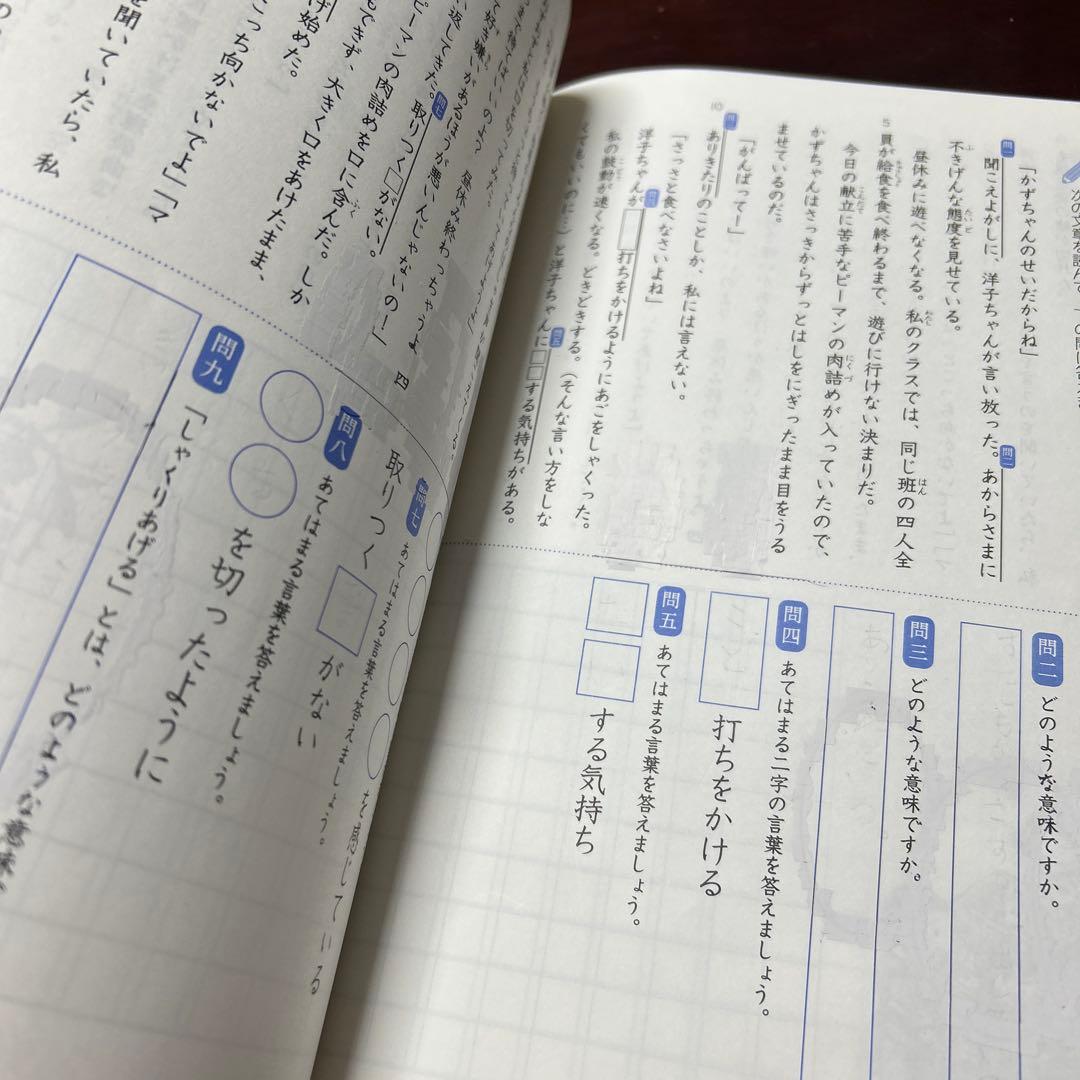 次の文章を読んで、
「かずちゃんのせいだからね」
問一
聞こえよがしに、洋子ちゃんが言い放った。あからさまに
問二
不きげんな態度を見せている。
昼休みに遊べなくなる。私のクラスでは、同じ班の四人全
5 員が給食を食べ終わるまで、遊びに行けない決まりだ。
今日の献立に苦手なピーマンの肉詰めが入っていたので、
かずちゃんはさっきからずっとはしをにぎったまま目をうる
ませているのだ。
「がんばってー」
10
問三
ありきたりのことしか、私には言えない。
「さっさと食べなさいよね」
問四
洋子ちゃんが□打ちをかけるようにあごをしゃくった。
私の鼓動が速くなる。どきどきする。(そんな言い方をしな
くてもいいのに…)と洋子ちゃんに□□する気持ちがある。
問五
問二 どのような意味ですか。
問三 どのような意味ですか。
問四 あてはまる二字の言葉を答えましょう。
打ちをかける
問五 あてはまる言葉を答えましょう。
する気持ち
好き嫌いがあるほうが悪いんじゃないの!」
返してきた。取りつく□がない。
問七
昼休み終わっちゃうよ
四
ピーマンの肉詰めを口に含んだ。しか
もできず、大きく口をあけたまま、
げ始めた。
こっち向かないでよ」「マ
を聞いていたら、私
を感じている
問七 あてはまる言葉を答えましょう。
取りつく□がない
問八 あてはまる言葉を答えましょう。
○○を切ったように
問九 「しゃくりあげる」とは、どのような意味